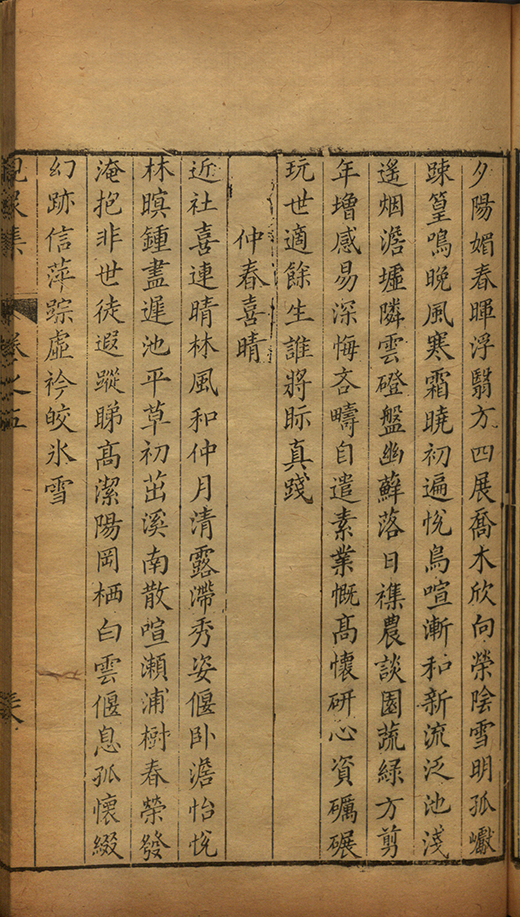 夕陽媚春暉浮翳方四展喬木欣向榮陰雪明孤巘
踈篁鳴晚風寒霜曉初遍悅鳥喧漸和新流泛池淺
遥烟澹墟隣雲磴盤幽蘚落日襍農談園蔬綠方剪
年增感易深悔吝疇自遣素業慨髙懷研心資礪碾
玩世適餘生誰將眎真踐
仲春喜晴
近社喜連晴林風和仲月清露滯秀姿偃卧澹怡悅
林暝鍾盡遲池平草初茁溪南散喧瀨浦樹春榮發
淹抱非世徒遐蹤睇髙潔陽岡栖白雲偃息孤懷綴
幻跡信萍踪虛衿皎氷雪
集 卷之五